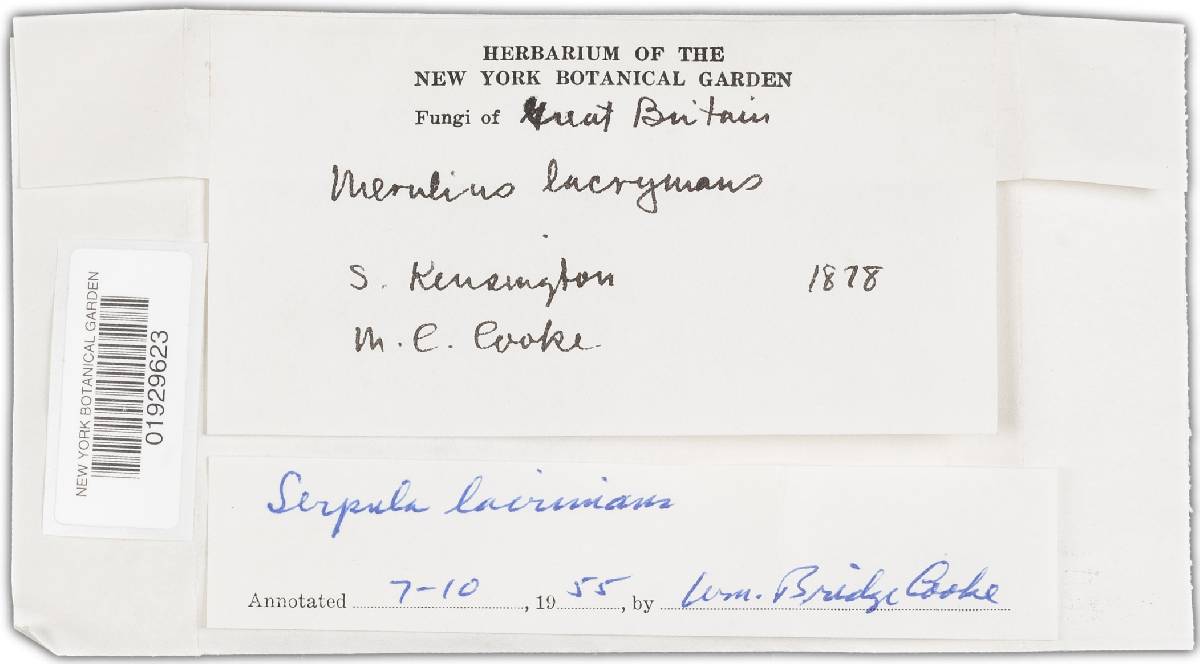 HERBARIUM OF THE
NEW YORK BOTANICAL GARDEN
Fungi of Great Britain
Merulius lacrymans
S. Kensington 1878
M. C. Cooke.
NEW YORK BOTANICAL GARDEN
01929623
Serpula lacrimans
Annotated 7-10, 1955, by Wm. Bridge Cooke